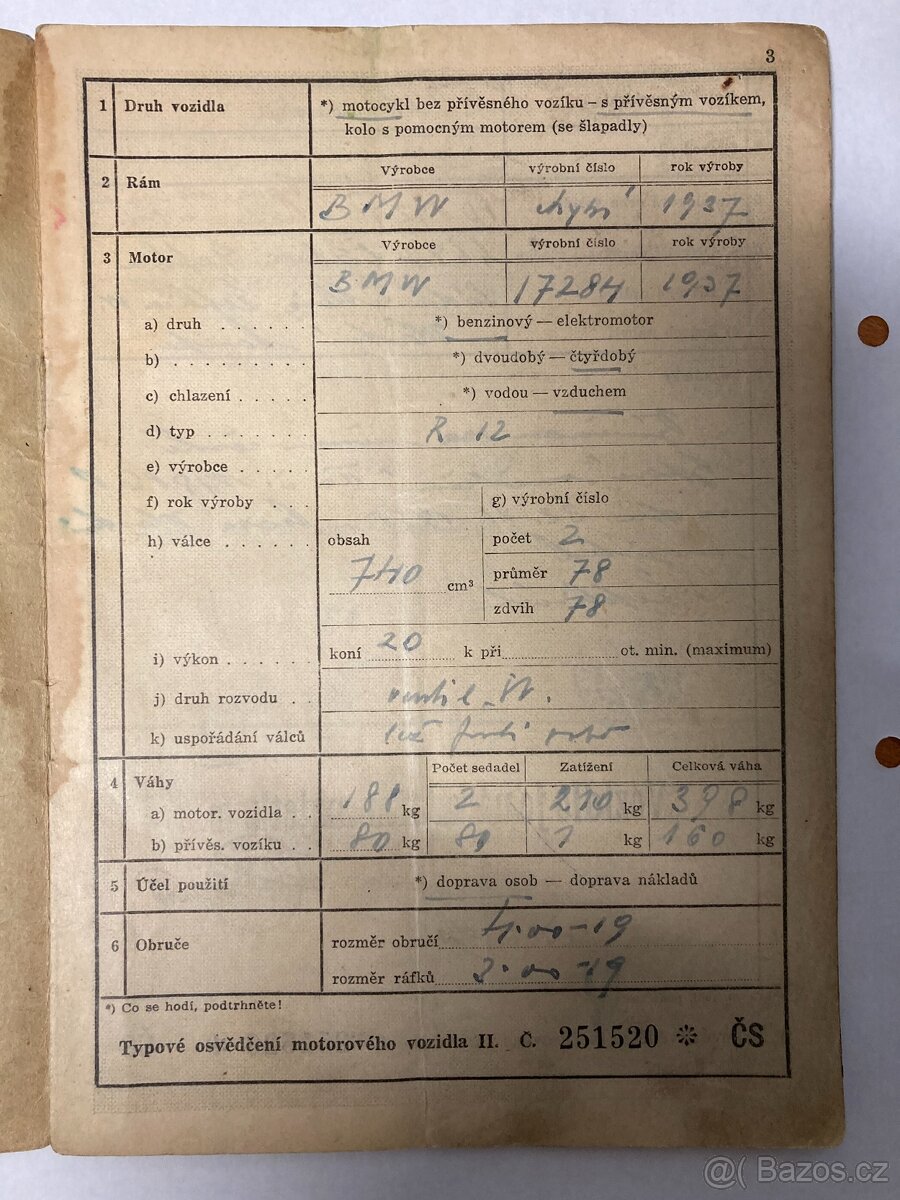 3
1 Druh vozidla *) motocykl bez přívěsného vozíku – s přívěsným vozíkem,
kolo s pomocným motorem (se šlapadly)
2 Rám Výrobce výrobní číslo rok výroby
BMW chybí 1937
3 Motor Výrobce výrobní číslo rok výroby
BMW 17284 1937
a) druh . . . . . . *) benzinový — elektromotor
b) . . . . . . . . . *) dvoudobý — čtyřdobý
c) chlazení . . . . . *) vodou — vzduchem
d) typ . . . . . . . R 12
e) výrobce . . . . .
f) rok výroby . . . g) výrobní číslo
h) válce . . . . . . obsah počet 2
740 cm³ průměr 78
zdvih 78
i) výkon . . . . . . koní 20 k při ot. min. (maximum)
j) druh rozvodu . . ventil
k) uspořádání válců
4 Váhy Počet sedadel Zatížení Celková váha
a) motor. vozidla . . 188 kg 2 210 kg 398 kg
b) přívěs. vozíku . . 80 kg 80 1 kg 160 kg
5 Účel použití *) doprava osob — doprava nákladů
6 Obruče rozměr obručí 4.00-19
rozměr ráfků 3.00-19
*) Co se hodí, podtrhněte!
Typové osvědčení motorového vozidla II. Č. 251520 ✻ ČS
@( Bazos.cz